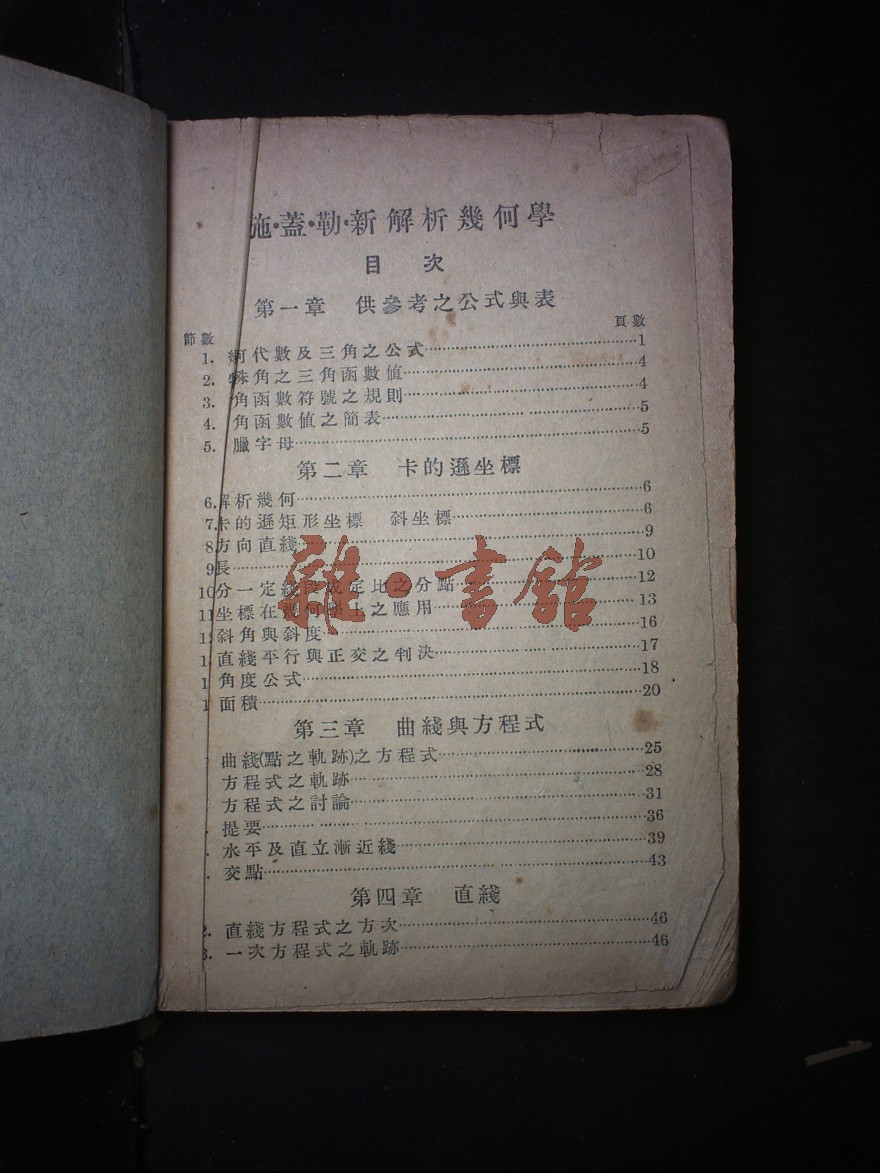 施·蓋·勒·新解析幾何學
目 次
第一章 供參考之公式與表
節數 頁數
1. 何代數及三角之公式……1
2. 殊角之三角函數值……4
3. 角函數符號之規則……4
4. 角函數值之簡表……5
5. 臘字母……5
第二章 卡的遜坐標
6. 解析幾何……6
7. 卡的遜矩形坐標 斜坐標……6
8 方向直綫……9
9 長……10
10 分一定綫段成定比之分點……12
11 坐標在幾何學上之應用……13
1 斜角與斜度……16
1 直綫平行與正交之判決……17
1 角度公式……18
1 面積……20
第三章 曲綫與方程式
曲綫(點之軌跡)之方程式……25
方程式之軌跡……28
方程式之討論……31
提要……36
水平及直立漸近綫……39
交點……43
第四章 直綫
2. 直綫方程式之方次……46
3. 一次方程式之軌跡……46
雜·書館